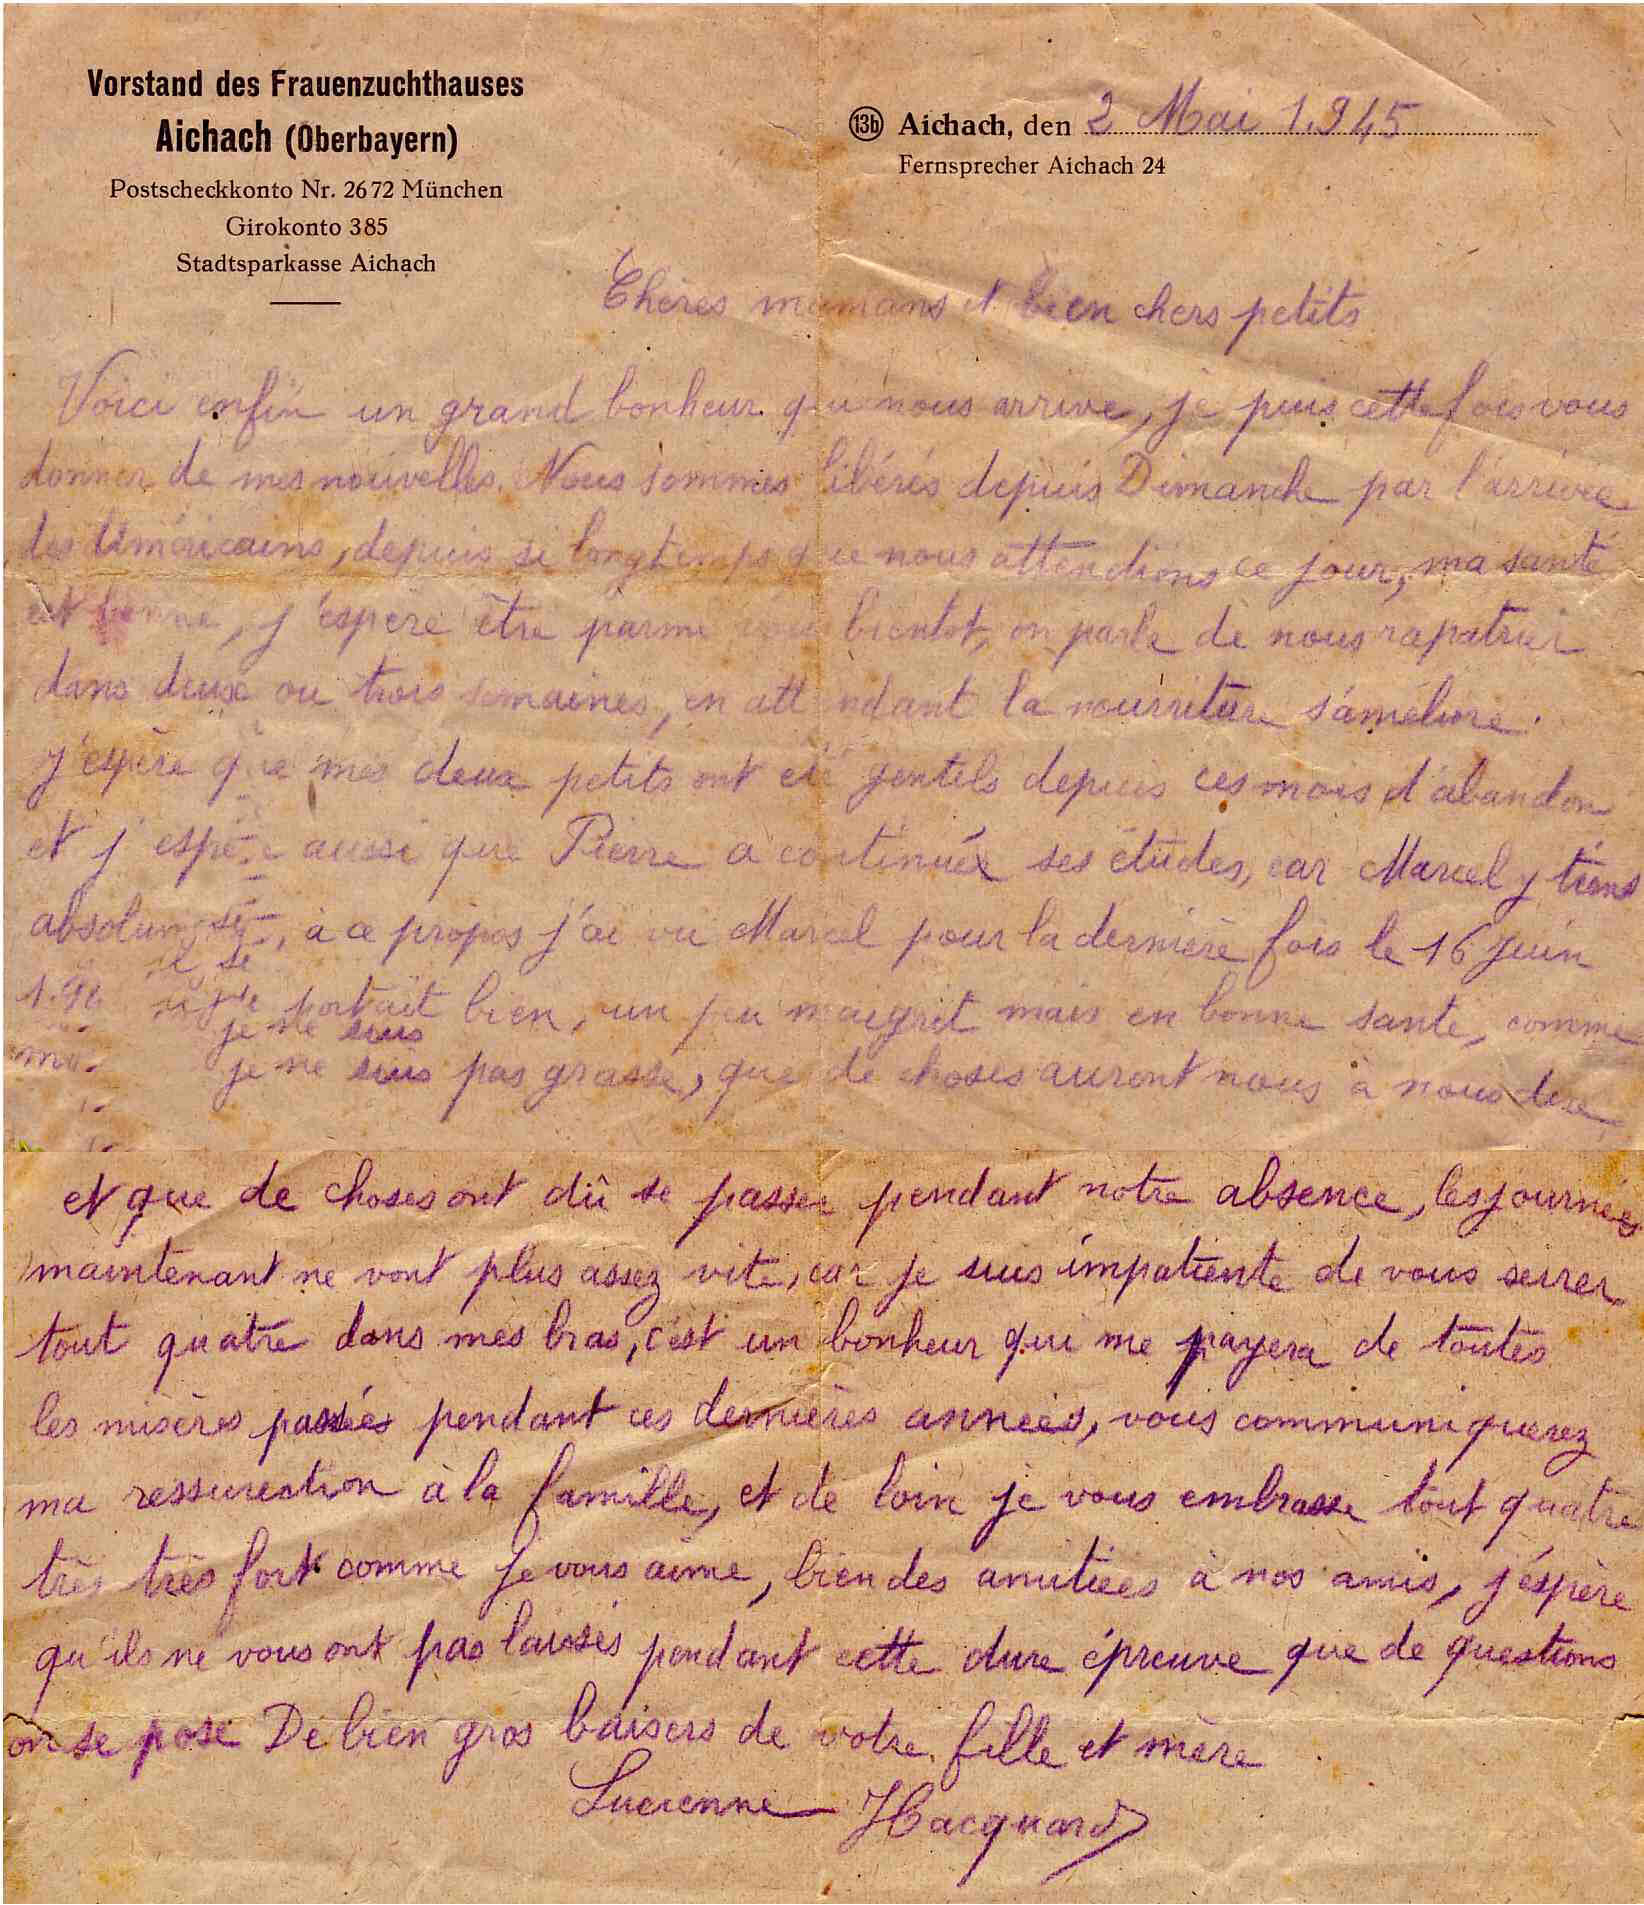 Vorstand des Frauenzuchthauses
Aichach (Oberbayern)
Postscheckkonto Nr. 2672 München
Girokonto 385
Stadtsparkasse Aichach
13b Aichach, den 2 Mai 1.945
Fernsprecher Aichach 24
Chères mamans et bien chers petits
Voici enfin un grand bonheur qui nous arrive, je puis cette fois vous
donner de mes nouvelles. Nous sommes libérés depuis Dimanche par l'arrivée
des Américains, depuis si longtemps que nous attendions ce jour, ma santé
est bonne, j'espère être parmi vous bientot, on parle de nous rapatrier
dans deux ou trois semaines, en attendant la nourriture s'améliore.
j'espère que mes deux petits ont été gentils depuis ces mois d'abandon
et j'espère aussi que Pierre a continuée ses études, car Marcel y tiens
absolum, à ce propos j'ai vu Marcel pour la dernière fois le 16 juin
1.94 il se portait bien, un peu maigrit mais en bonne santé, comme
je ne suis
moi je ne suis pas grasse, que de choses auront nous à nous dire
et que de choses ont dû se passer pendant notre absence, les journées
maintenant ne vont plus assez vite, car je suis impatiente de vous serrer
tout quatre dans mes bras, c'est un bonheur qui me payera de toutes
les misères passées pendant ces dernières années, vous communiquerez
ma ressurection à la famille, et de loin je vous embrasse tout quatre
très très fort comme je vous aime, bien des amitiées à nos amis, j'éspère
qu'ils ne vous ont pas laissés pendant cette dure épreuve que de questions
on se pose De bien gros baisers de votre fille et mère
Lucienne Hacquard